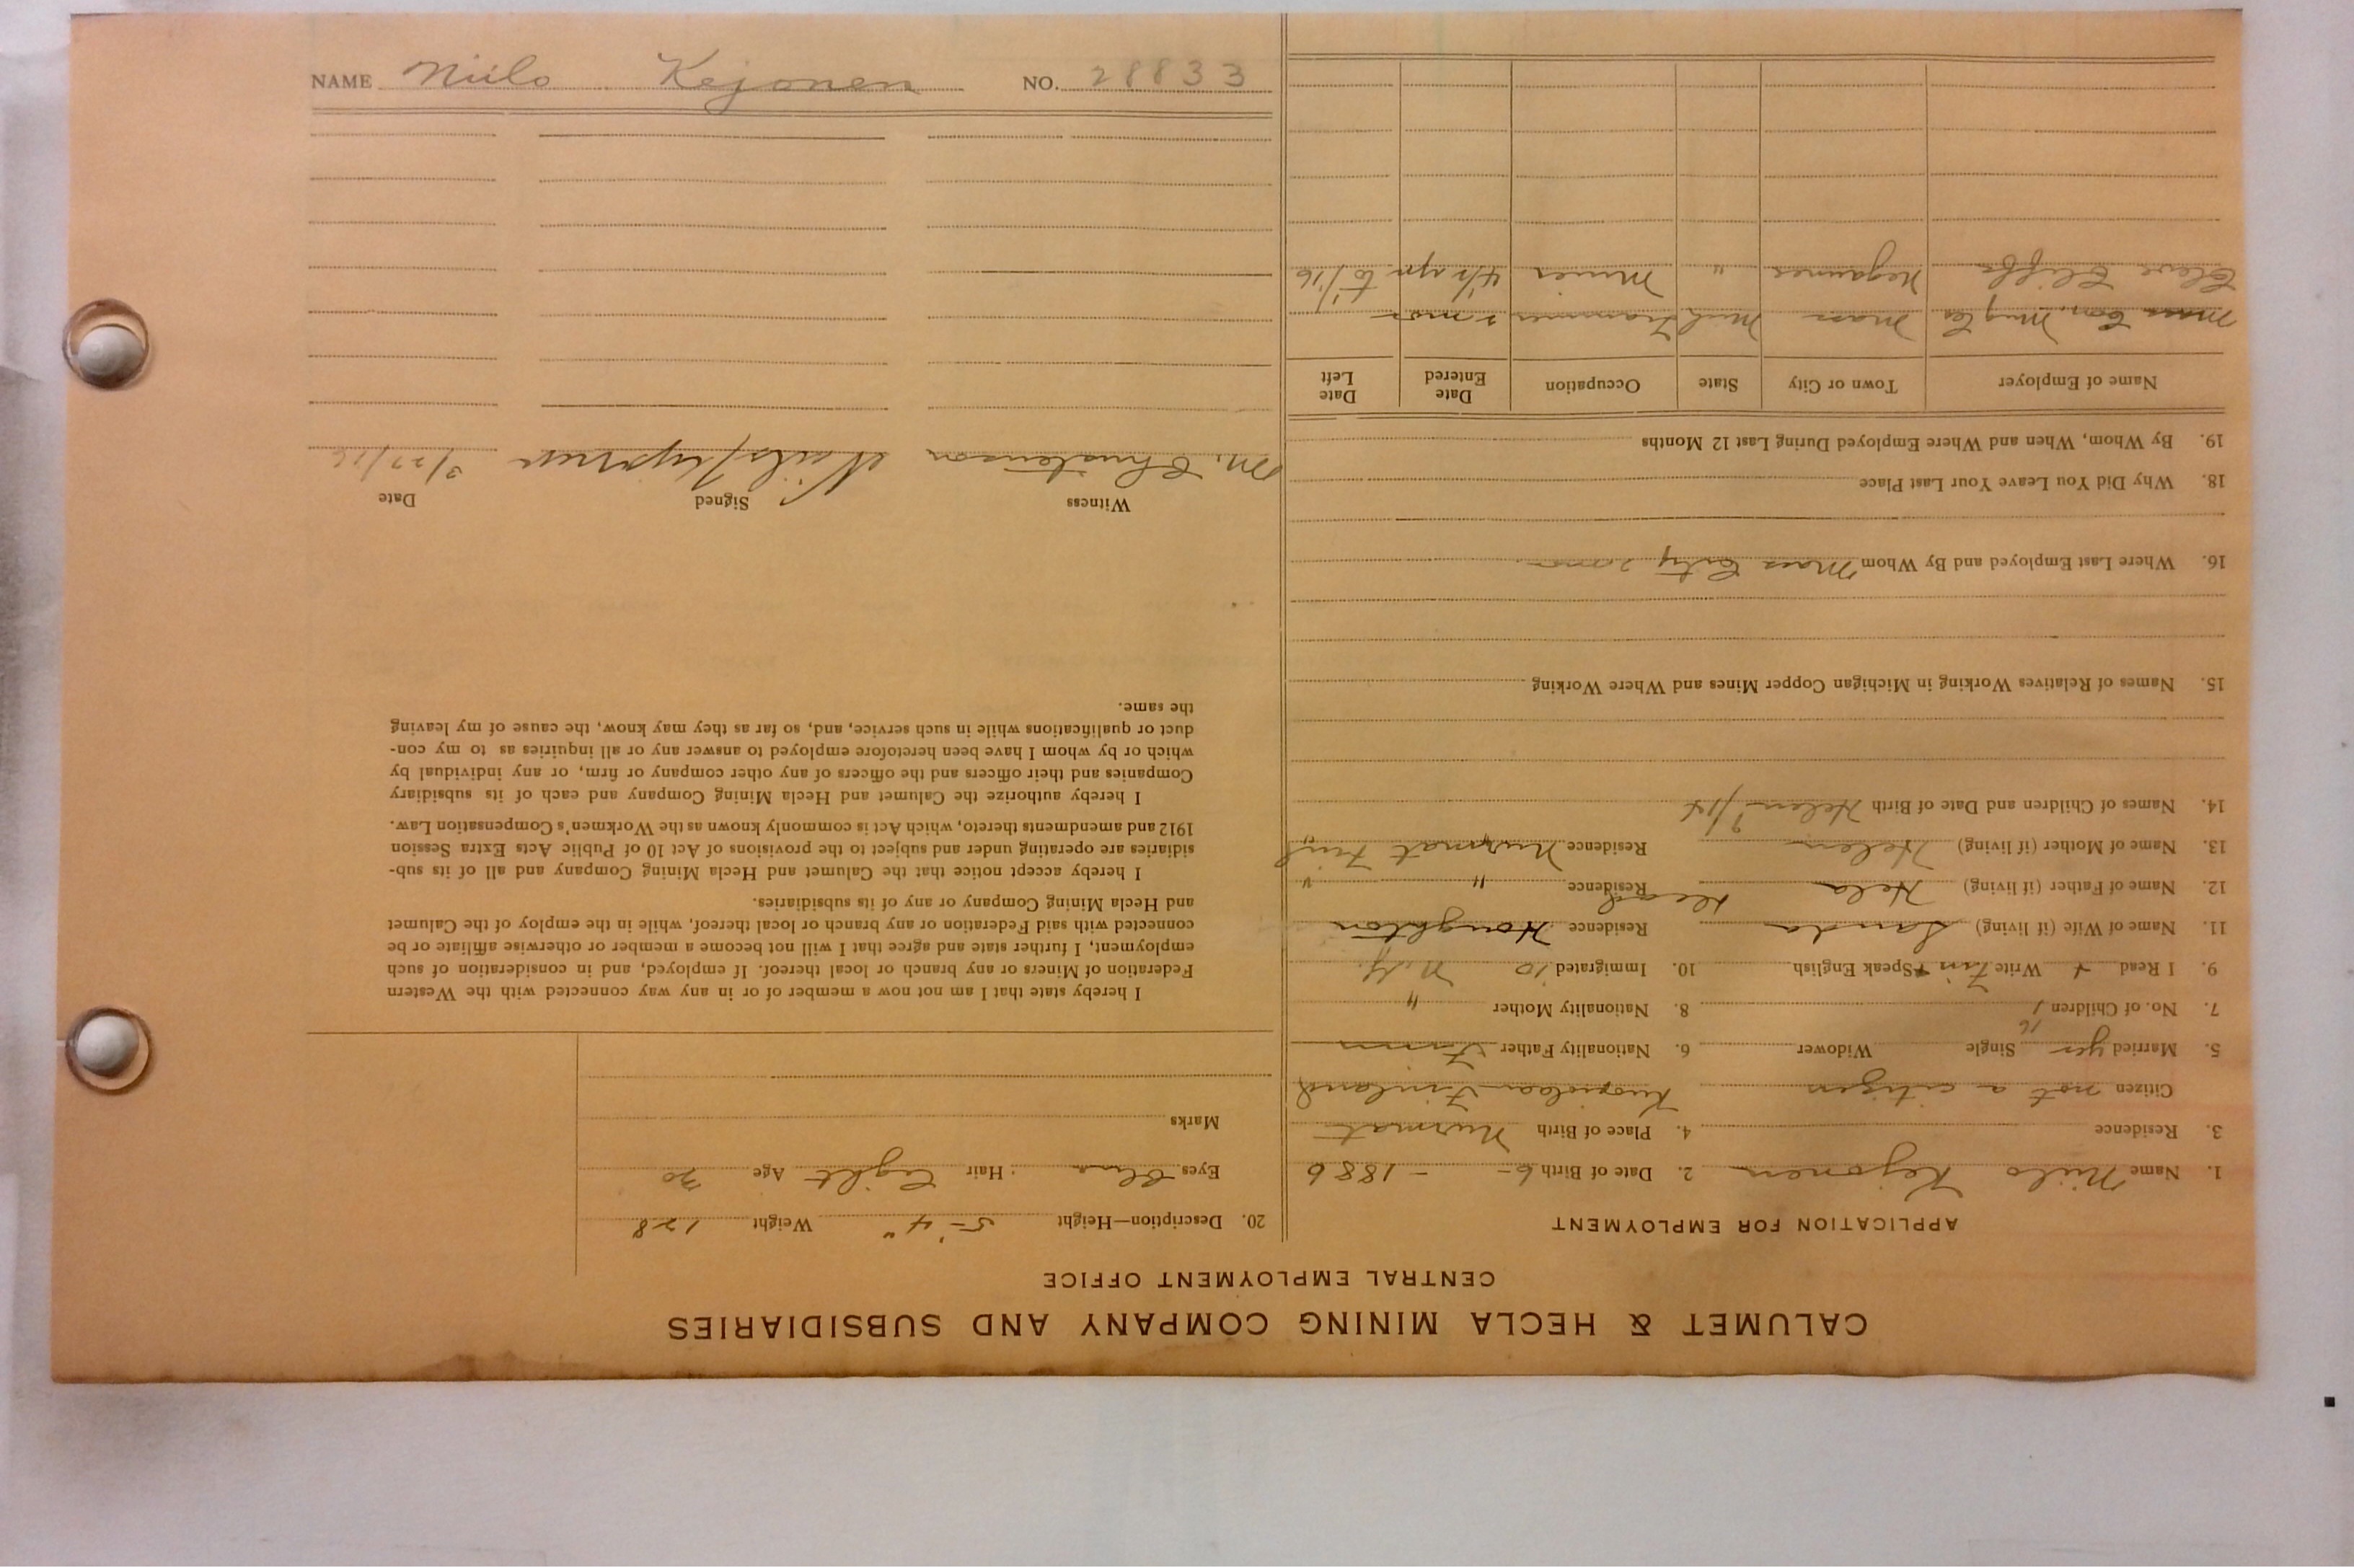 CALUMET & HECLA MINING COMPANY AND SUBSIDIARIES
CENTRAL EMPLOYMENT OFFICE
APPLICATION FOR EMPLOYMENT
1. Name Niilo Kejonen 2. Date of Birth 6 - - 1886
3. Residence 4. Place of Birth Nurmat
Citizen not a citizen Kuopiolaan Finland
5. Married yes Single Widower 6. Nationality Father Finn
7. No. of Children 1 8. Nationality Mother "
9. I Read + Write Fin + Speak English 10. Immigrated '10 N.Y.
11. Name of Wife (if living) Sanda Residence Houghton
12. Name of Father (if living) Hela dead Residence " "
13. Name of Mother (if living) Helen Residence Nurmat Finl
14. Names of Children and Date of Birth Helen
15. Names of Relatives Working in Michigan Copper Mines and Where Working
16. Where Last Employed and By Whom Mass City 2 mos
18. Why Did You Leave Your Last Place
19. By Whom, When and Where Employed During Last 12 Months
Name of Employer Town or City State Occupation Date Entered Date Left
Mass Con. Mng Co Mass Mich Trammer 2 mos
Cleve Cliffs Negaunee " Miner 4½ yrs to 1/16
20. Description—Height 5-4" Weight 128
Eyes Blue Hair Light Age 30
Marks
I hereby state that I am not now a member of or in any way connected with the Western
Federation of Miners or any branch or local thereof. If employed, and in consideration of such
employment, I further state and agree that I will not become a member or otherwise affiliate or be
connected with said Federation or any branch or local thereof, while in the employ of the Calumet
and Hecla Mining Company or any of its subsidiaries.
I hereby accept notice that the Calumet and Hecla Mining Company and all of its sub-
sidiaries are operating under and subject to the provisions of Act 10 of Public Acts Extra Session
1912 and amendments thereto, which Act is commonly known as the Workmen's Compensation Law.
I hereby authorize the Calumet and Hecla Mining Company and each of its subsidiary
Companies and their officers and the officers of any other company or firm, or any individual by
which or by whom I have been heretofore employed to answer any or all inquiries as to my con-
duct or qualifications while in such service, and, so far as they may know, the cause of my leaving
the same.
Witness Signed Date
M. Christenson Niilo Kejonen 3/27/16
NAME Niilo Kejonen NO. 28833